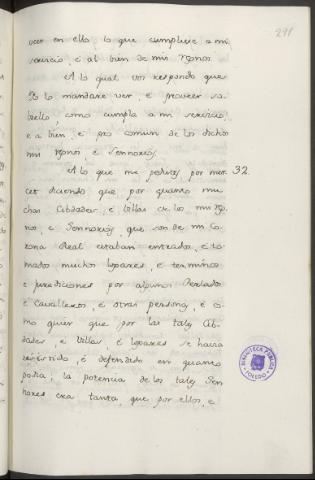 291
veer en ello, lo que cumpliere a mi
servicio, é al bien de mis Rgnos.
A lo qual vos respondo que
Yo lo mandaré ver, é proveer so-
brello, como cumpla a mi servicio,
e a bien, é pro comun de los dichos
mis Rgnos, é Sennorios.
A lo que me pedistes por mer- 32.
cet diciendo que por quanto mu-
chas Cibdades, é Villas de los mis Rg-
nos, e Sennorios, que son de mi Co-
rona Real estaban entrados, é to-
mados muchos logares, é terminos
e jurediciones por algunos Perlados
é Cavalleros, é otras personas, é co-
mo quier que por las tales Cib-
dades, é Villas, é logares se havia
resistido, é defendido en quanto
podia, la potencia de los tales Sen-
nores era tanta que por ellos, e
BIBLIOTECA PUBLICA
TOLEDO